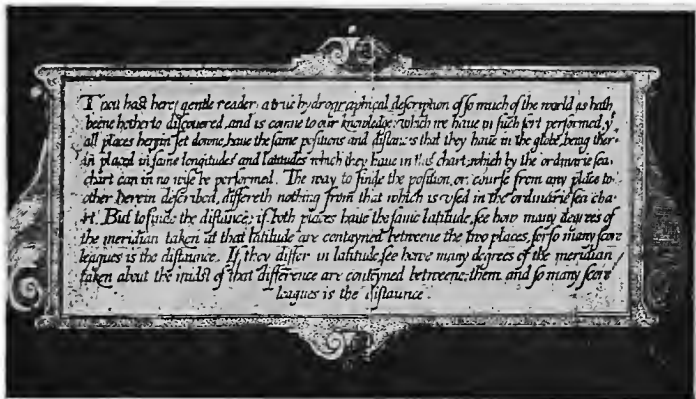 Thou hast here, gentle reader, a true hydrographical description of so much of the world as hath
beene hetherto discouered, and is comme to our knowledge: which we haue in such sort performed, yͭ
all places herein set downe, haue the same positions and distances that they haue in the globe, being ther-
in placed in same longitudes and latitudes which they haue in this chart, which by the ordinarie sea
chart can in no wise be performed. The way to finde the position, or course from any place to
other herein described, differeth nothing from that which is vsed in the ordinarie sea cha-
rt. But to finde the distance; if both places haue the same latitude, see how many degrees of
the meridian taken at that latitude are contayned betweene the two places, for so many score
leagues is the distaunce. If they differ in latitude, see howe many degrees of the meridian
taken about the midst of that difference are conteyned betweene them and so many score
leagues is the distaunce.